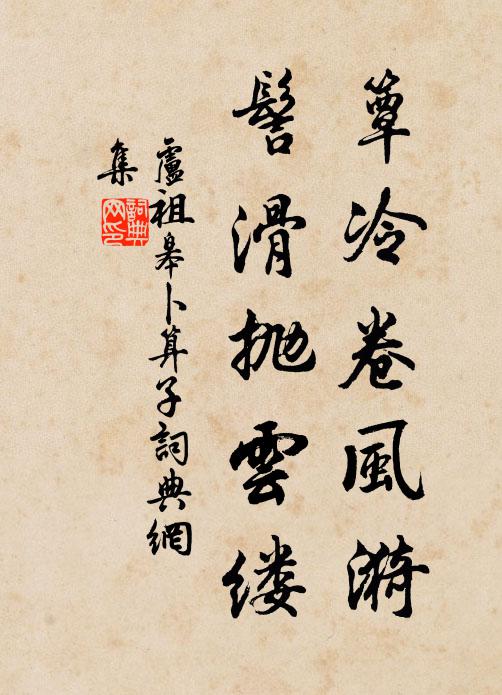 簟冷卷風漪
髻滑抛雲缕
盧祖皋卜算子詞典網
集
詞典网印